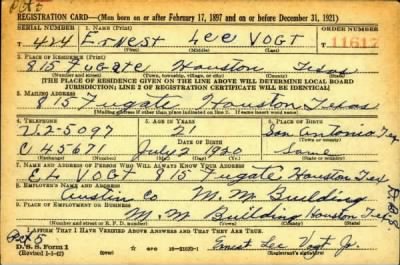 Pct 5
REGISTRATION CARD—(Men born on or after February 17, 1897 and on or before December 31, 1921)
SERIAL NUMBER 1. NAME (Print) ORDER NUMBER
T 424 ERNEST LEE VOGT 11617
(First) (Middle) (Last)
2. PLACE OF RESIDENCE (Print)
815 Fugate Houston Texas
(Number and street) (Town, township, village, or city) (County) (State)
[THE PLACE OF RESIDENCE GIVEN ON THE LINE ABOVE WILL DETERMINE LOCAL BOARD
JURISDICTION; LINE 2 OF REGISTRATION CERTIFICATE WILL BE IDENTICAL]
3. MAILING ADDRESS
815 Fugate Houston Texas
[Mailing address if other than place indicated on line 2. If same insert word same]
4. TELEPHONE 5. AGE IN YEARS 6. PLACE OF BIRTH
V.2-5097 21 San Antonio Tex
DATE OF BIRTH
C 45671 July 2 1920
(Exchange) (Number) (Mo.) (Day) (Yr.) (State or country)
7. NAME AND ADDRESS OF PERSON WHO WILL ALWAYS KNOW YOUR ADDRESS
EL VOGT 815 Fugate Houston Tex
8. EMPLOYER'S NAME AND ADDRESS
Austin Co M.M Building
9. PLACE OF EMPLOYMENT OR BUSINESS
M.M Building Houston Tex
(Number and street or R. F. D. number) (Town) (County) (State)
I AFFIRM THAT I HAVE VERIFIED ABOVE ANSWERS AND THAT THEY ARE TRUE.
Pct 5
D. S. S. Form 1
(Revised 1-1-42) Ernest Lee Vogt Jr.
(Registrant's signature)